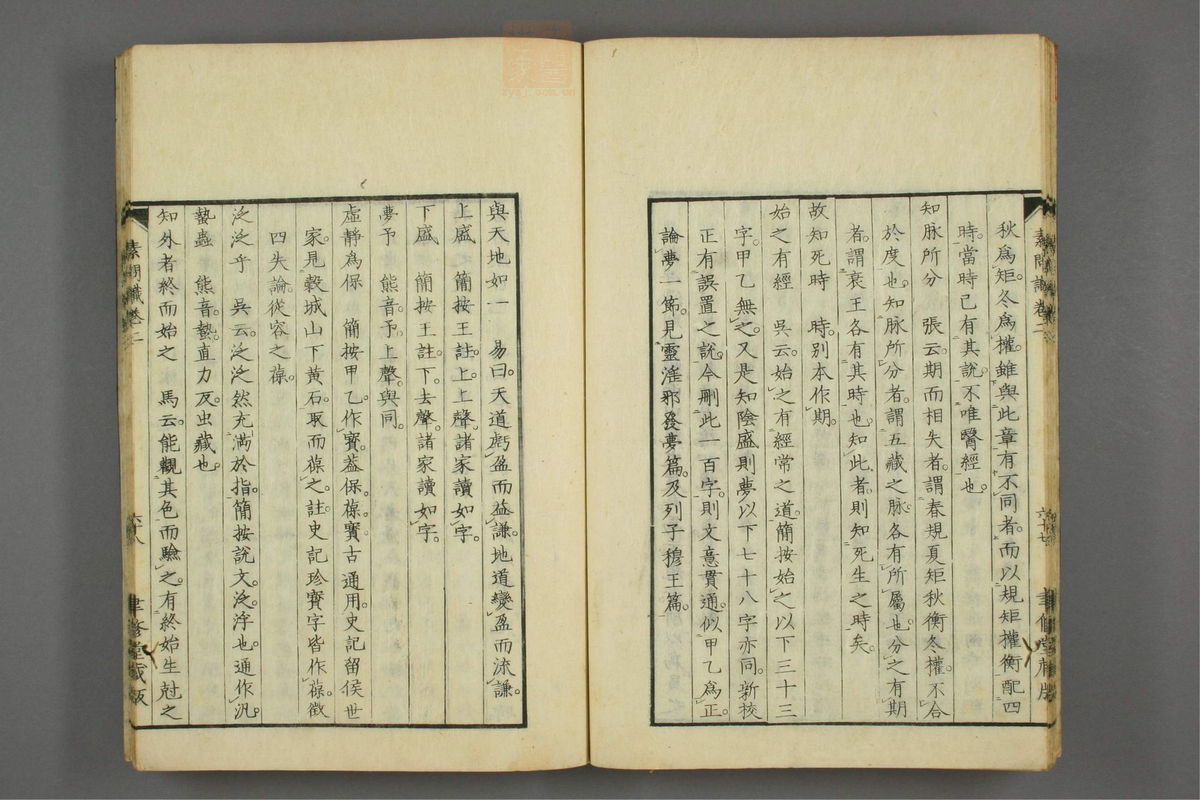 秋爲矩。冬爲權。雖與此章有不同者。而以規矩權衡配四
時。當時已有其說。不唯醫經也。
知脉所分　張云。期而相失者。謂春規夏矩秋衡冬權。不合
於度也。知脉所分者。謂五藏之脉。各有所屬也。分之有期
者。謂衰王各有其時也。知此者。則知死生之時矣。
故知死時　時。別本作期。
始之有經　吳云。始之有經常之道。簡按始之以下三十三
字。甲乙無之。又是知陰盛則夢以下七十八字亦同。新校
正有誤置之說。今刪此一百字。則文意貫通。似甲乙爲正。
論夢一節。見靈淫邪發夢篇。及列子穆王篇。
素問識卷二
六十七
聿修堂藏版
與天地如一　易曰。天道虧盈而益謙。地道變盈而流謙。
上盛　簡按王註。上。上聲。諸家讀如字。
下盛　簡按王註。下。去聲。諸家讀如字。
夢予　熊音。予上聲。與同。
虛靜爲保　簡按甲乙。作寶。蓋保。葆。寶。古通用。史記留侯世
家。見穀城山下黃石。取而葆之。註史記珍寶字皆作葆。徵
四失論。從容之葆。
泛泛乎　吳云。泛泛然充滿於指。簡按說文。泛。浮也。通作汎。
蟄蟲　熊音。蟄。直力反。虫藏也。
知外者終而始之　馬云。能觀其色而驗之。有終始生尅之
素問識卷二
六十八
聿修堂藏版